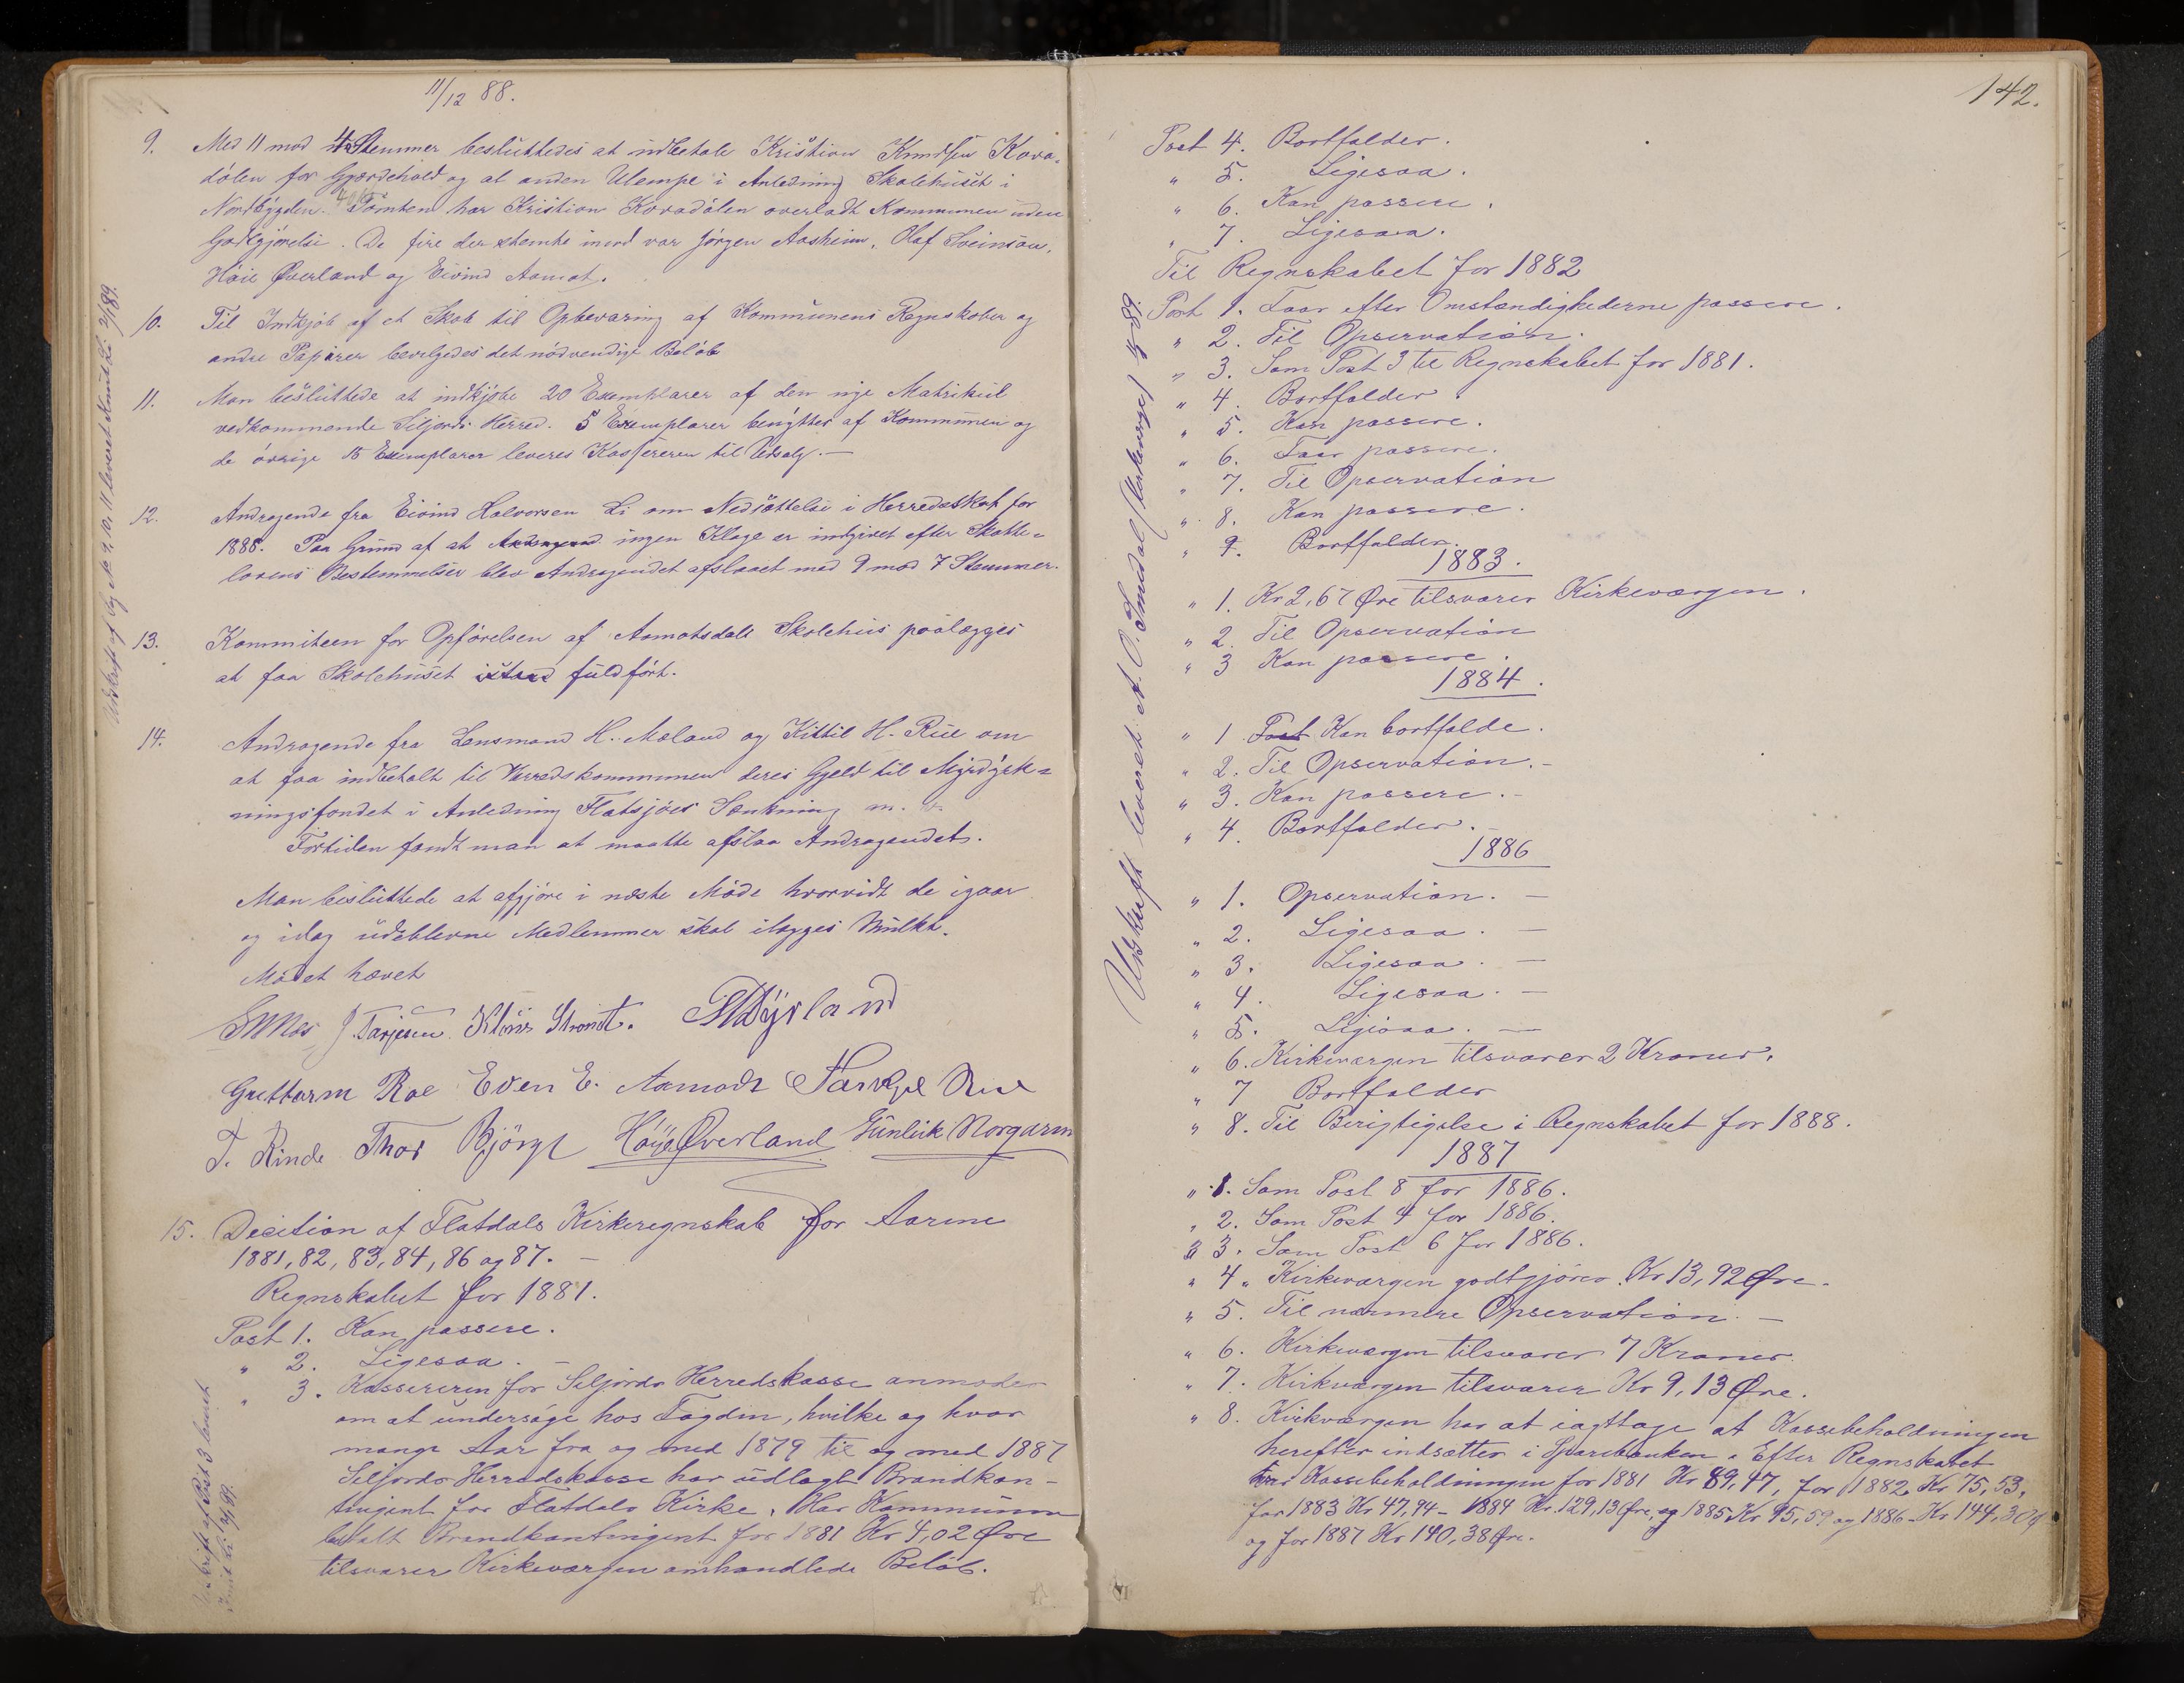 11/12 88.
9. Med 11 mod 4 Stemmer besluttedes at udbetale Kristian Knudsen Kova-
dalen for Gjærdehold og al anden Ulempe i Anledning Skolehuset i
Nordbygden. Tomten har Kristian Kovadalen overladt Kommunen uden
Godtgjørelse. De fire der stemte imod var Jørgen Aasheim, Olaf Sveinson,
Høie Øverland og Eivind Aamot.
10. Til Indkjøb af et Skab til Opbevaring af Kommunens Regnskaber og
andre Papirer bevilgedes det nødvendige Beløb
11. Man besluttede at indkjøbe 20 Exemplarer af den nye Matrikul
vedkommende Siljords Herred. 5 Exemplarer benyttes af Kommunen og
de øvrige 15 Exemplarer leveres Kassereren til Udsalg.—
12. Andragende fra Eivind Halvorsen Li om Nedsættelse i Herredsskat for
1888. Paa Grund af at ingen Klage er indgivet efter Skatte-
lovens Bestemmelser blev Andragendet afslaaet med 9 mod 7 Stemmer.
13. Kommiteen for Opførelsen af Aamotsdals Skolehus paalægges
at faa Skolehuset istand fuldført.
14. Andragende fra Lensmand H. Moland og Kittil H. Rue om
at faa indbetalt til Herredskommunen deres Gjeld til Myrdyrk-
ningsfondet i Anledning Flatsjøes Sænkning m. v.
Fortiden fandt man at maatte afslaa Andragendet.
Man besluttede at afgjøre i næste Møde hvorvidt de igaar
og idag udeblevne Medlemmer skal ilægges Mulkt.
Mødet hævet
J. Tarjesen. Strondt. Dyrland
Guttorm Roe Even E. Aamodt Tarkjel Rue
T. Rinde Thor Bjørge Høye Øverland Gunleik Norgaren
15. Decition af Flatdals Kirkeregnskab for Aarene
1881, 82, 83, 84, 86 og 87. —
Regnskabet for 1881.
Post 1. Kan passere.
" 2. Ligesaa. —
" 3. Kassereren for Seljords Herredskasse anmodes
om at undersøge hos Fogden, hvilke og hvor
mange Aar fra og med 1879 til og med 1887
Seljords Herredskasse har udlagt Brandkon-
tingent for Flatdals Kirke. Har Kommunen
betalt Brandkontingent for 1881 Kr 4,02 Øre
tilsvarer Kirkeværgen omhandlede Beløb.
Udskrift af Sag No 9, 10, 11 leveret Knut Li 2/1 89.
Udskrift af Post 3 leveret
Knut Li 89.
142.
Post 4. Bortfalder.
" 5. Ligesaa.
" 6. Kan passere.
" 7. Ligesaa.
Til Regnskabet for 1882
Post 1. Faar efter Omstændighederne passere.
" 2. Til Opservation.
" 3. Som Post 3 til Regnskabet for 1881.
" 4. Bortfalder.
" 5. Kan passere.
" 6. Faar passere.
" 7. Til Opservation
" 8. Kan passere.
" 9. Bortfalder.
1883.
" 1. Kr 2,67 Øre tilsvarer Kirkeværgen.
" 2. Til Opservation
" 3 Kan passere.
1884.
" 1 Post Kan bortfalde.
" 2. Til Opservation.—
" 3. Kan passere.—
" 4. Bortfalder.—
1886
" 1. Opservation. —
" 2. Ligesaa. —
" 3. Ligesaa. —
" 4. Ligesaa. —
" 5. Ligesaa. —
" 6. Kirkeværgen tilsvarer 2 Kroner.
" 7 Bortfalder
" 8. Til Berigtigelse i Regnskabet for 1888.
1887
" 1. Som Post 8 for 1886.
" 2. Som Post 4 for 1886.
" 3. Som Post 6 for 1886.
" 4. Kirkeværgen godtgjøres Kr 13,92 Øre.
" 5. Til nærmere Opservation. —
" 6. Kirkeværgen tilsvarer 7 Kroner.
" 7. Kirkeværgen tilsvarer Kr 9,13 Øre.
" 8. Kirkeværgen har at iagttage at Kassebeholdningen
herefter indsættes i Sparebanken. Efter Regnskabet
var Kassebeholdningen for 1881 Kr 89,47, for 1882 Kr 75,53,
for 1883 Kr 47,94 - 1884 Kr. 129,13 Øre, og 1885 Kr 95,59 og 1886 - Kr 144,30
og for 1887 Kr 140,38 Øre.
Udskrift leveret A. O. Smedal (Kirkeværge) 89.